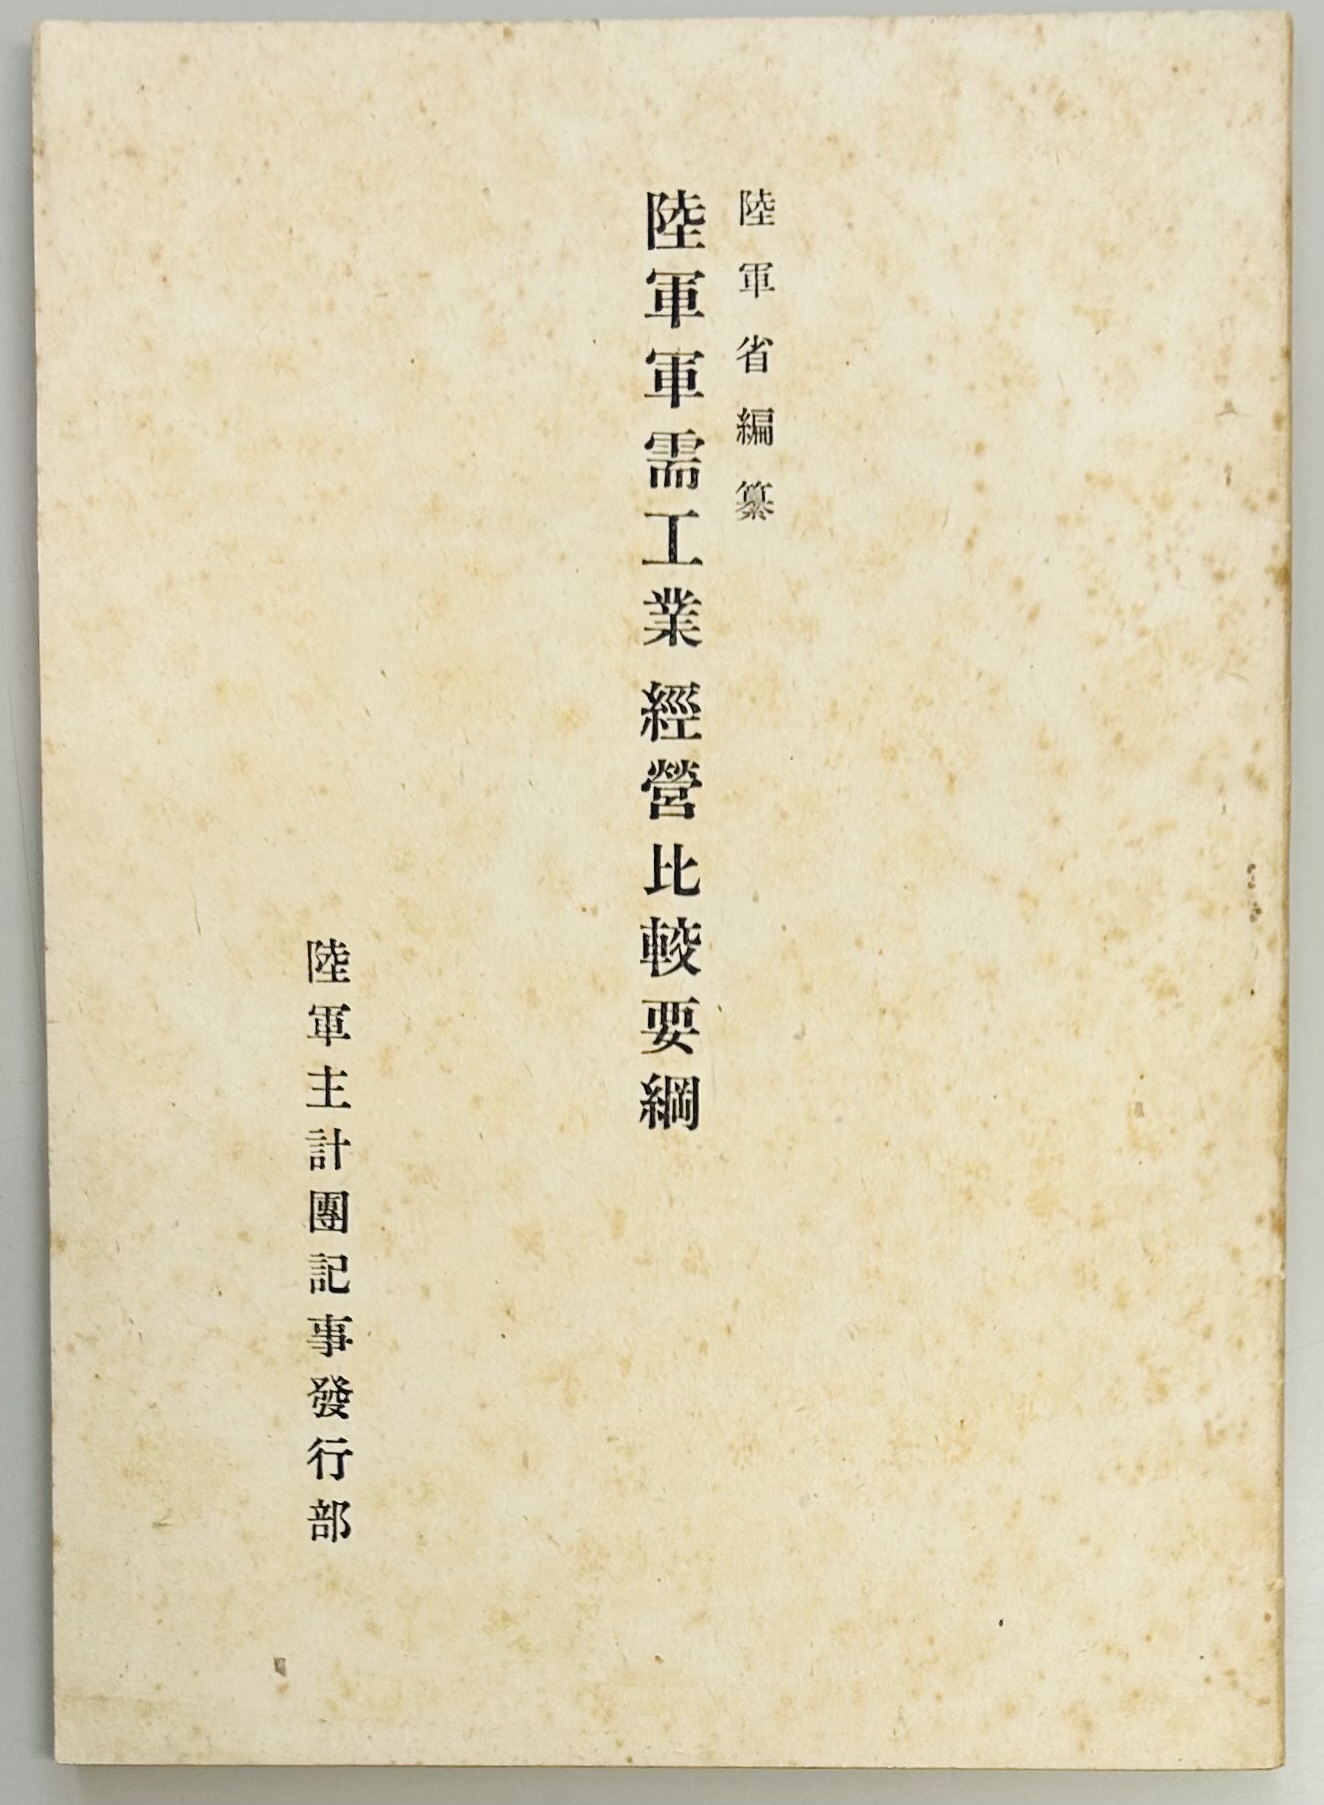 陸軍省編纂
陸軍軍需工業 經營比較要綱
陸軍主計團記事發行部